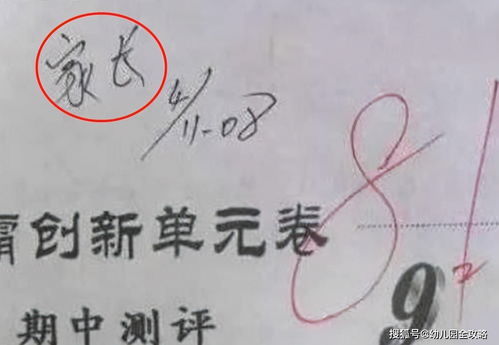 家长
4/11-08
81
创新单元卷
期中测评
搜狐号@幼儿园全攻略